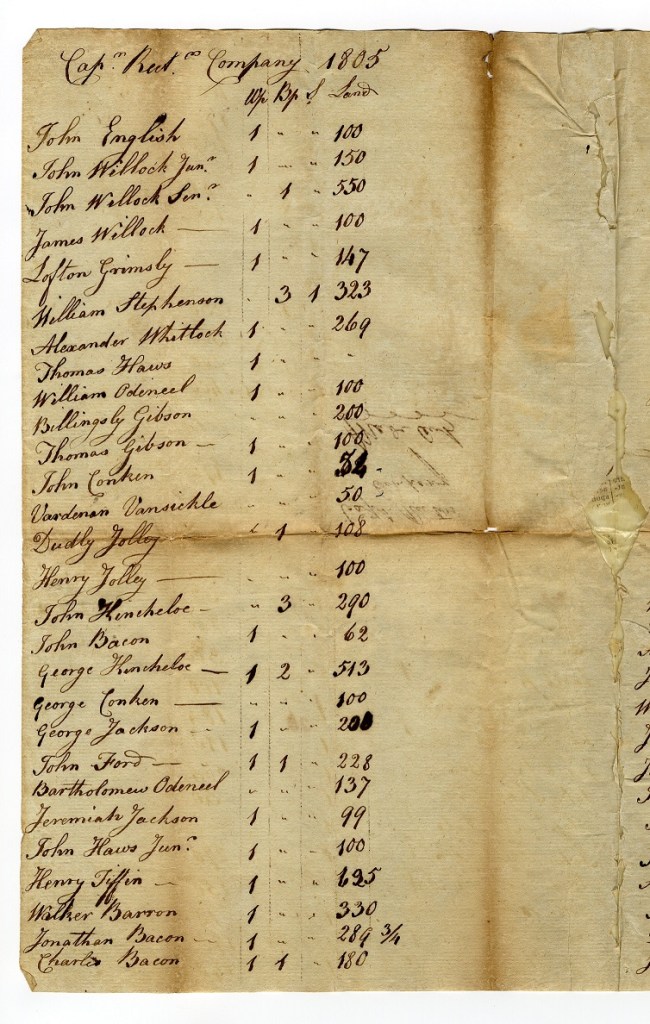 Capn. Rect.rs Company 1805
Wp Bp S. Land
John English 1 " " 100
John Willock Junr. 1 " " 150
John Willock Senr. " 1 " 550
James Willock — 1 " " 100
Lofton Grimsly — 1 " " 147
William Stephenson " 3 1 323
Alexander Whitlock 1 " " 269
Thomas Haws 1 " " "
William Odeneel 1 " " 100
Billingsly Gibson " " " 200
Thomas Gibson — 1 " " 100
John Conken 1 " "
Vardeman Vansickle " " " 50
Dudly Jolley — " 1 " 108
Henry Jolley — " " " 100
John Kincheloe — " 3 " 290
John Bacon 1 " " 62
George Kincheloe — 1 2 " 513
George Conken — " " " 100
George Jackson 1 " " 200
John Ford — 1 1 " 228
Bartholomew Odeneel " " " 137
Jeremiah Jackson 1 " " 99
John Haws Junr. 1 " " 100
Henry Tiffin — 1 " "
Walker Barron 1 " " 330
Jonathan Bacon — 1 " " 289 3/4
Charles Bacon 1 1 " 180